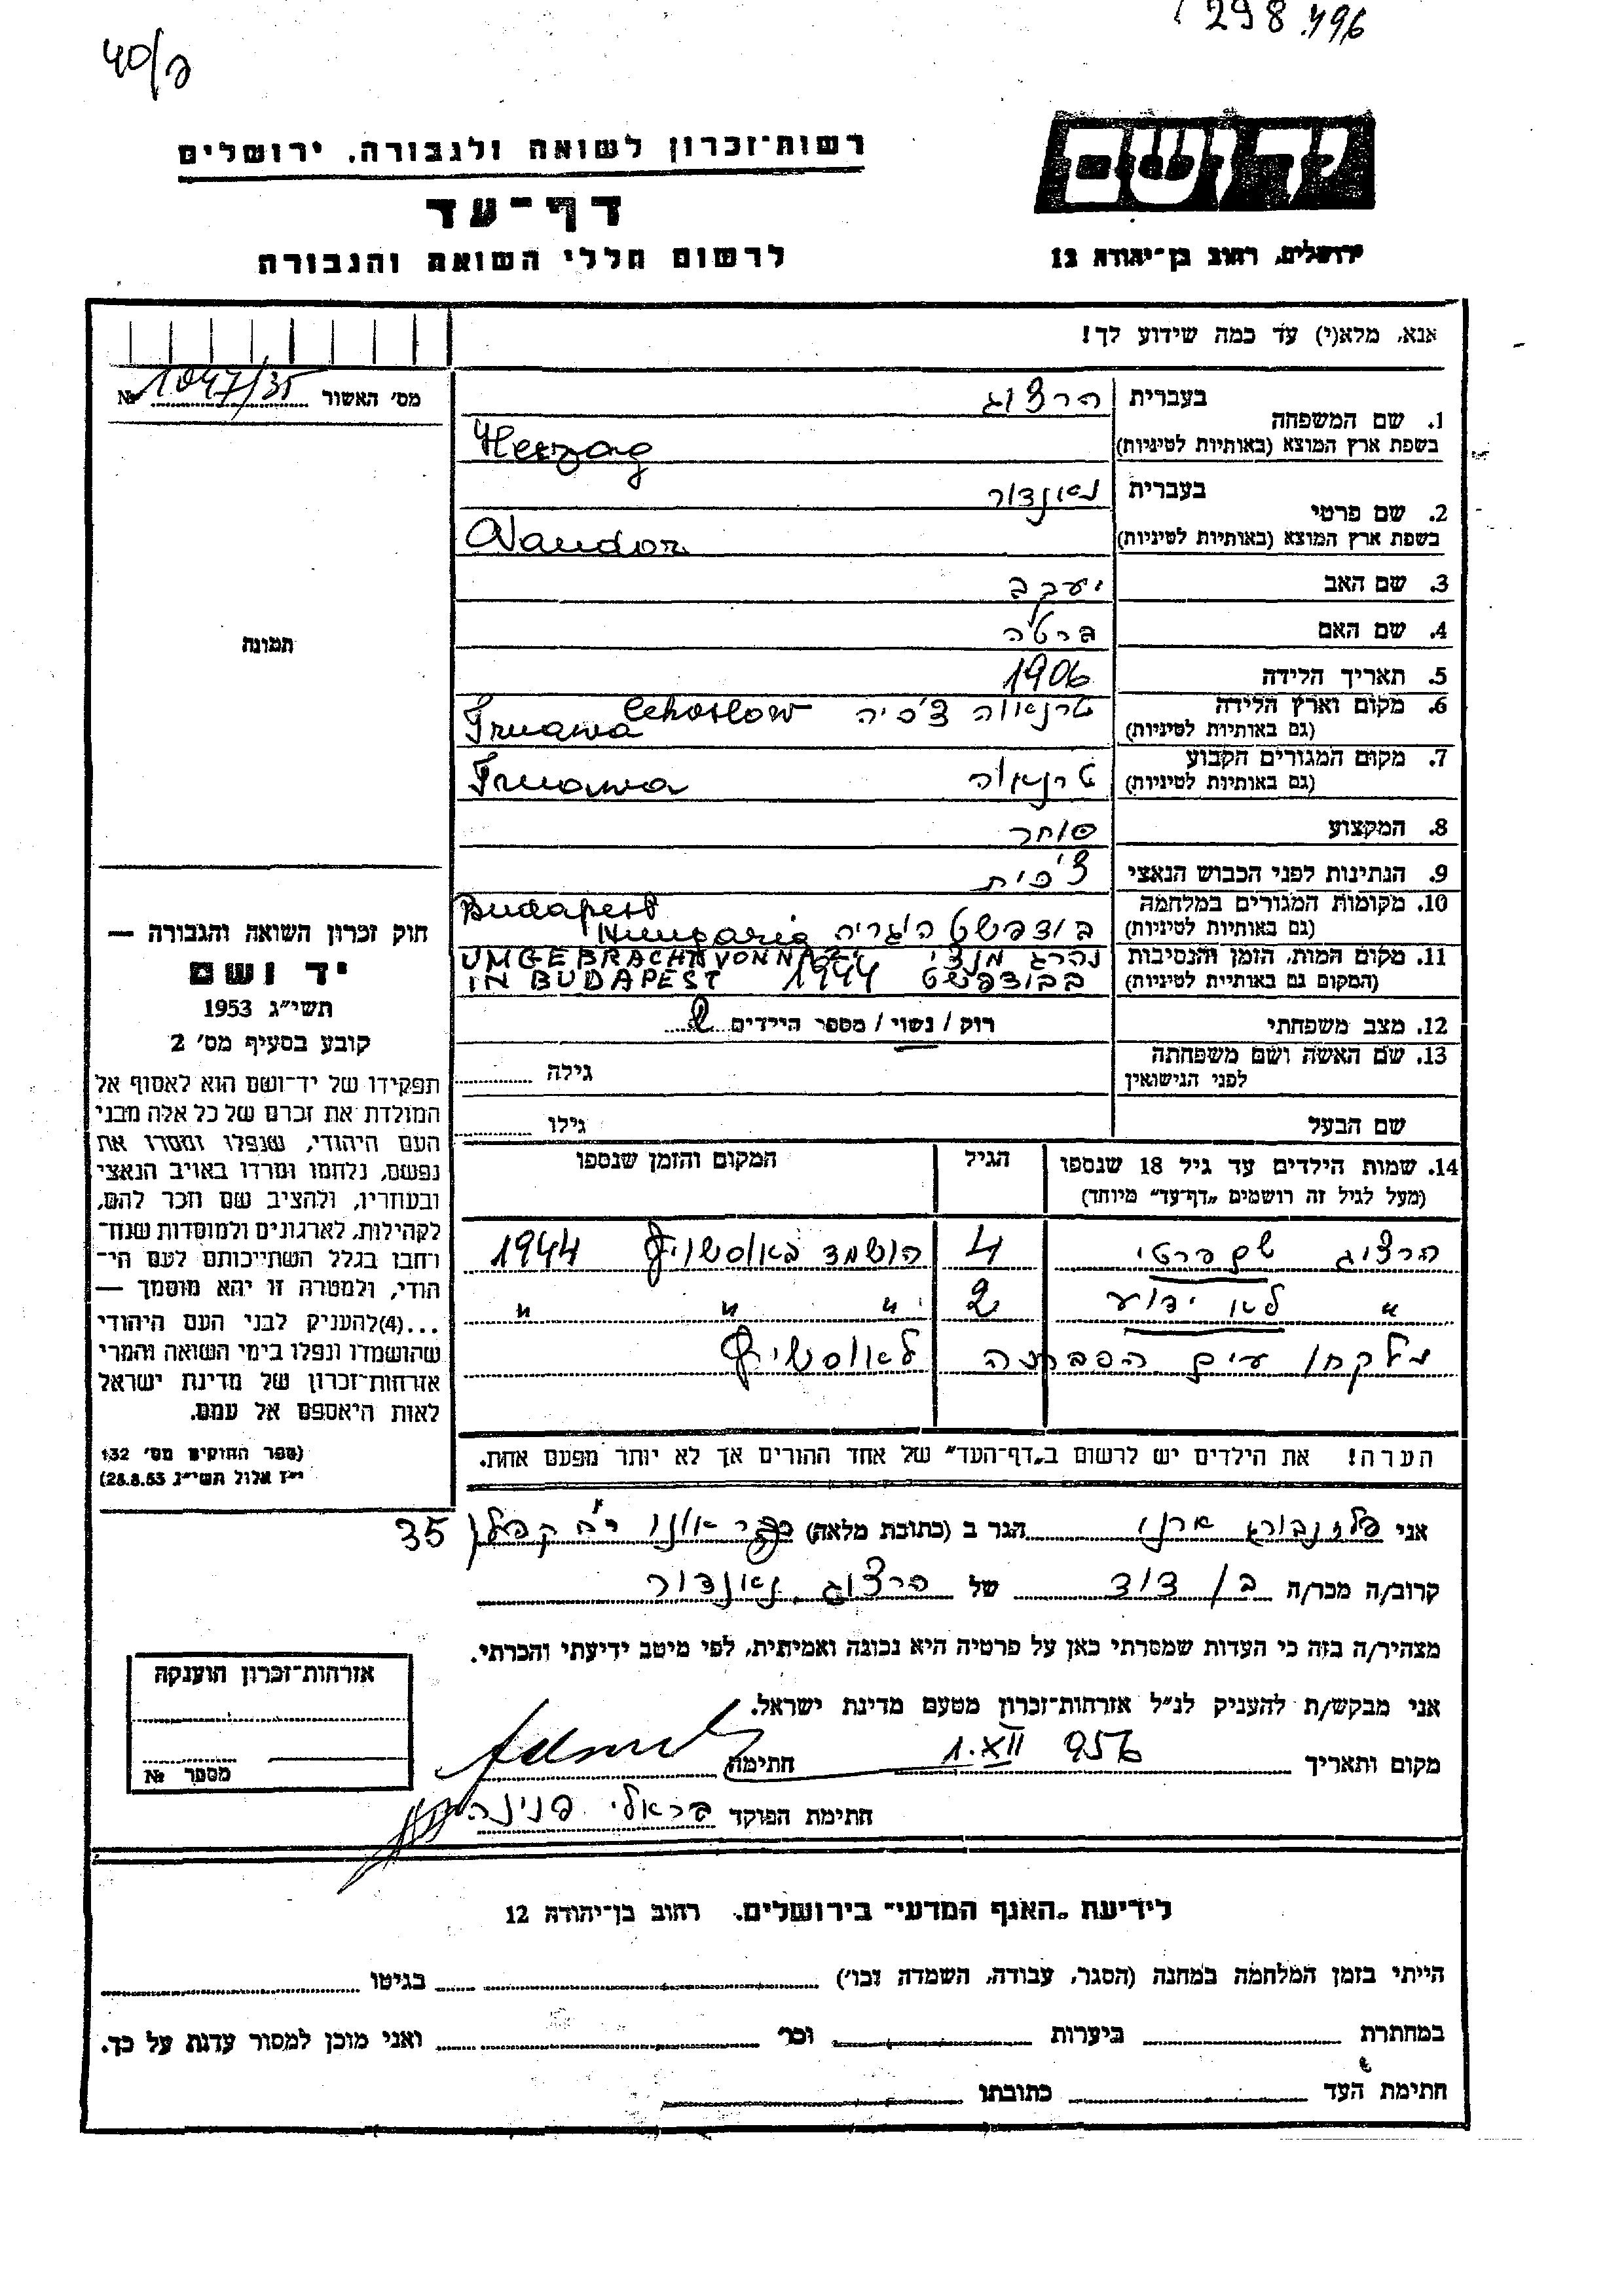 298.496
40/ג
יד ושם
רשות־זכרון לשואה ולגבורה, ירושלים
דף־עד
לרשום חללי השואה והגבורה
ירושלים, רחוב בן־יהודה 12
אנא, מלא(י) עד כמה שידוע לך!
מס׳ האשור 1047/35 №
1. שם המשפחה בעברית הרצוג
בשפת ארץ המוצא (באותיות לטיניות) Herzog
2. שם פרטי בעברית נאנדור
בשפת ארץ המוצא (באותיות לטיניות) Nandor
3. שם האב יעקב
4. שם האם ברטה
5. תאריך הלידה 1906
6. מקום וארץ הלידה טרנאווה צ'כיה Cehoslow
(גם באותיות לטיניות) Trnawa
7. מקום המגורים הקבוע טרנאוה
(גם באותיות לטיניות) Trnawa
8. המקצוע סוחר
9. הנתינות לפני הכבוש הנאצי צ'כית
10. מקומות המגורים במלחמה Budapest
(גם באותיות לטיניות) בודפשט הונגריה Hungaria
11. מקום המות, הזמן והנסיבות נהרג מנצי UMGEBRACHT VON NAZI
(המקום גם באותיות לטיניות) בבודפשט 1944 IN BUDAPEST
12. מצב משפחתי רוק / נשוי / מספר הילדים 2
13. שם האשה ושם משפחתה
לפני הנישואין גילה
שם הבעל גילו
14. שמות הילדים עד גיל 18 שנספו הגיל המקום והזמן שנספו
(מעל לגיל זה רושמים „דף־עד” מיוחד)
הרצוג שם פרטי 4 הושמד באוסשויץ 1944
" לא ידוע 2 " " "
נלקחו עים הסבתה לאוסשויץ
הערה! את הילדים יש לרשום ב„דף־העד” של אחד ההורים אך לא יותר מפעם אחת.
תמונה
חוק זכרון השואה והגבורה —
יד ושם
תשי״ג 1953
קובע בסעיף מס׳ 2
תפקידו של יד־ושם הוא לאסוף אל
המולדת את זכרם של כל אלה מבני
העם היהודי, שנפלו ומסרו את
נפשם, נלחמו ומרדו באויב הנאצי
ובעוזריו, ולהציב שם וזכר להם,
לקהילות, לארגונים ולמוסדות שנח־
רבו בגלל השתייכותם לעם הי־
הודי, ולמטרה זו יהא מוסמך —
...(4) להעניק לבני העם היהודי
שהושמדו ונפלו בימי השואה והמרי
אזרחות־זכרון של מדינת ישראל
לאות היאספם אל עמם.
(ספר החוקים מס׳ 132
י״ז אלול תשי״ג 28.8.53)
אני ארני הגר ב (כתובת מלאה) אונו קפלן 35
קרוב/ה מכר/ה בן דוד של הרצוג נאנדור
מצהיר/ה בזה כי העדות שמסרתי כאן על פרטיה היא נכונה ואמיתית, לפי מיטב ידיעתי והכרתי.
אני מבקש/ת להעניק לנ״ל אזרחות־זכרון מטעם מדינת ישראל.
מקום ותאריך 1.XII 956 חתימה
חתימת הפוקד בראלי פנינה
אזרחות־זכרון הוענקה
מספר №
לידיעת „האגף המדעי” בירושלים, רחוב בן־יהודה 12
הייתי בזמן המלחמה במחנה (הסגר, עבודה, השמדה וכו׳) בגיטו
במחתרת ביערות וכו׳ ואני מוכן למסור עדות על כך.
חתימת העד כתובתו